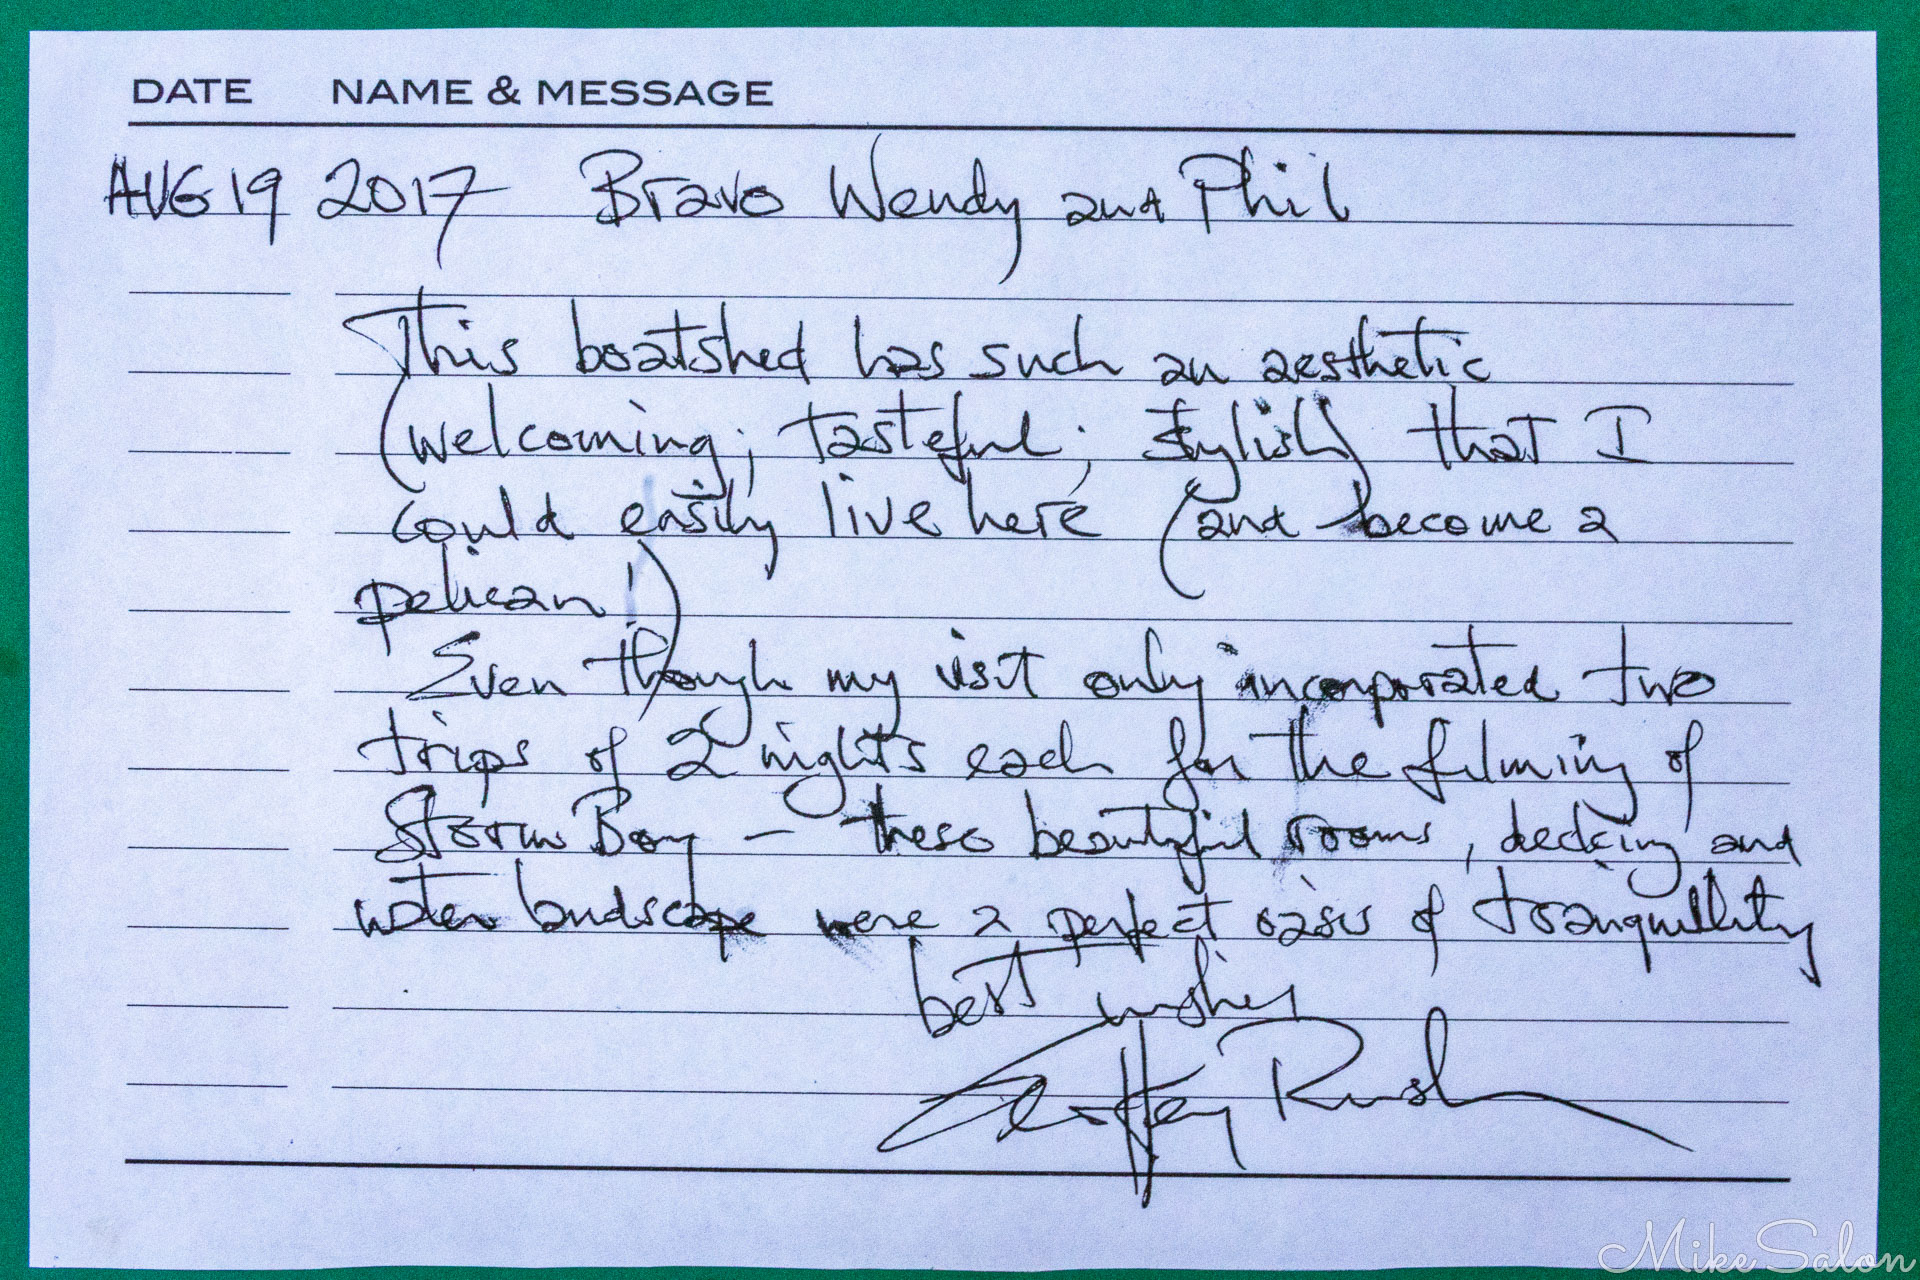 DATE NAME & MESSAGE
AUG 19 2017 Bravo Wendy and Phil
This boatshed has such an aesthetic
(welcoming; tasteful; stylish) that I
could easily live here (and become a
pelican!)
Even though my visit only incorporated two
trips of 2 nights each for the filming of
Storm Boy — these beautiful rooms, decking and
water landscape were a perfect oasis of tranquillity
best wishes
Geoffrey Rush
Mike Salon